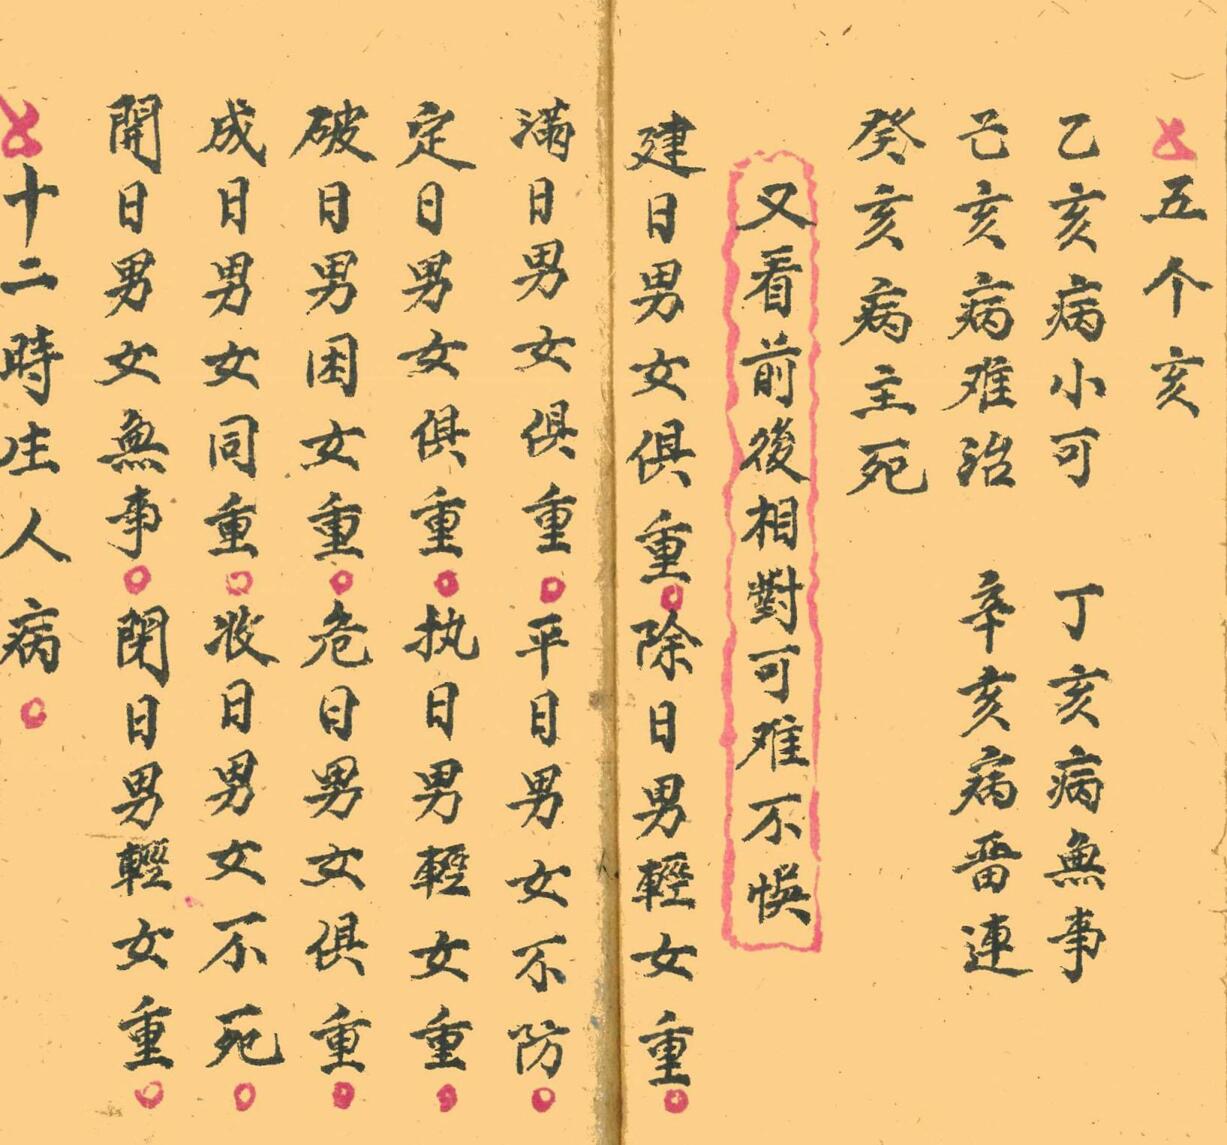 五个亥
乙亥病小可 丁亥病無事
己亥病难治 辛亥病畨連
癸亥病主死
又看前後相對可难不悞
建日男女俱重 除日男輕女重
滿日男女俱重 平日男女不防
定日男女俱重 执日男輕女重
破日男困女重 危日男女俱重
成日男女同重 收日男女不死
開日男女無事 閉日男輕女重
十二時生人病